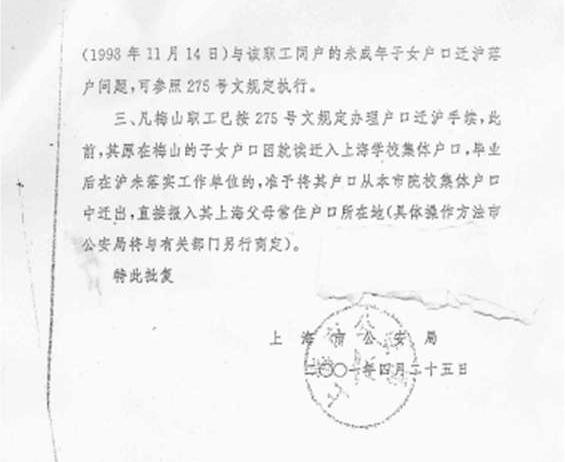 (1998年11月14日)与该职工同户的未成年子女户口迁沪落
户问题,可参照275号文规定执行。
三、凡梅山职工已按275号文规定办理户口迁沪手续,此
前,其原在梅山的子女户口因就读迁入上海学校集体户口,毕业
后在沪未落实工作单位的,准予将其户口从本市院校集体户口
中迁出,直接报入其上海父母常住户口所在地(具体操作方法市
公安局将与有关部门另行商定)。
特此批复
上海市公安局
二〇〇一年四月二十五日